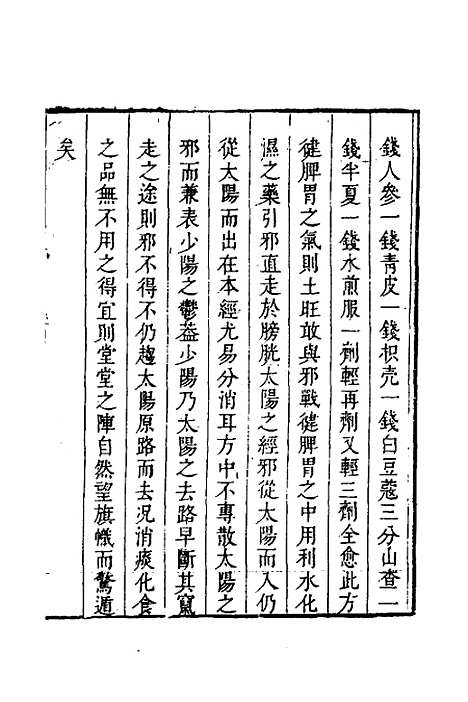 錢人參一錢青皮一錢枳壳一錢白豆蔻三分山查一
錢半夏一錢水煎服一劑輕再劑又輕三劑全愈此方
健脾胃之氣則土旺敢與邪戰健脾胃之中用利水化
濕之藥引邪直走於膀胱太陽之經邪從太陽而入仍
從太陽而出在本經尤易分消耳方中不專散太陽之
邪而兼表少陽之鬱葢少陽乃太陽之去路早斷其竄
走之途則邪不得不仍趨太陽原路而去况消痰化食
之品無不用之得宜則堂堂之陣自然望旗幟而驚遁
矣